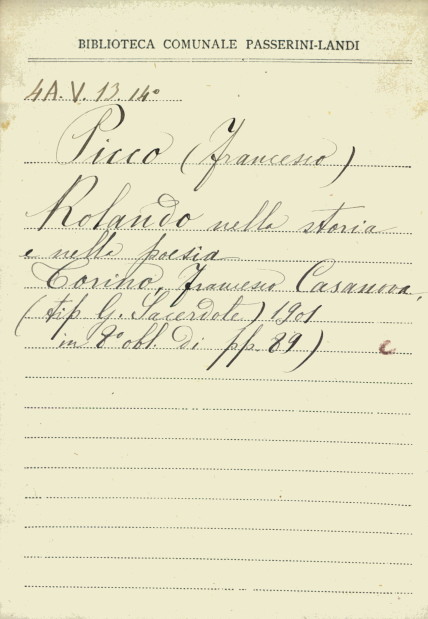 BIBLIOTECA COMUNALE PASSERINI-LANDI
4A. V. 13. 14°
Picco (Francesco)
Rolando nella storia
e nella poesia
Torino, Francesco Casanova,
(tip G. Sacerdote) 1901
in 8° obl. di pp. 89)
C